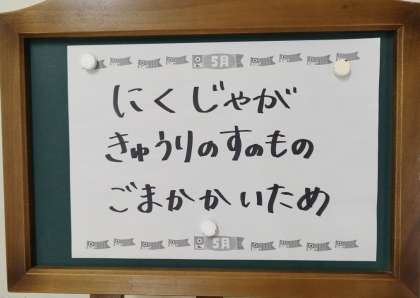 5月
にくじゃが
きゅうりのすのもの
ごまかかいため
5月